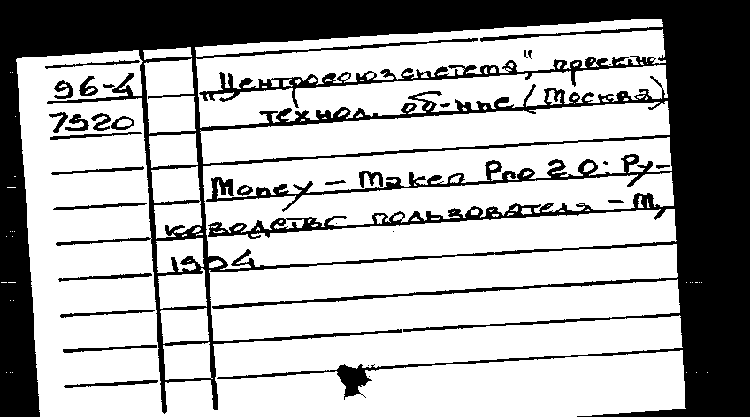 96-4
7920
"Центросоюзсистема", проектно-
технол. об-ние (Москва)
Money - Maker Pro 2.0: Ру-
ководство пользователя - М.,
1994.